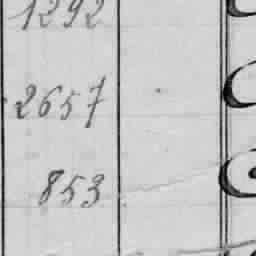 1292
2657
853